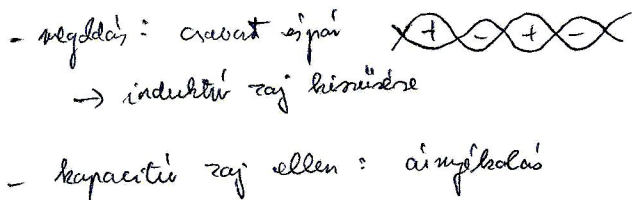 - megoldás: csavart érpár + - + -
→ induktív zaj kiszűrésére
- kapacitív zaj ellen: árnyékolás